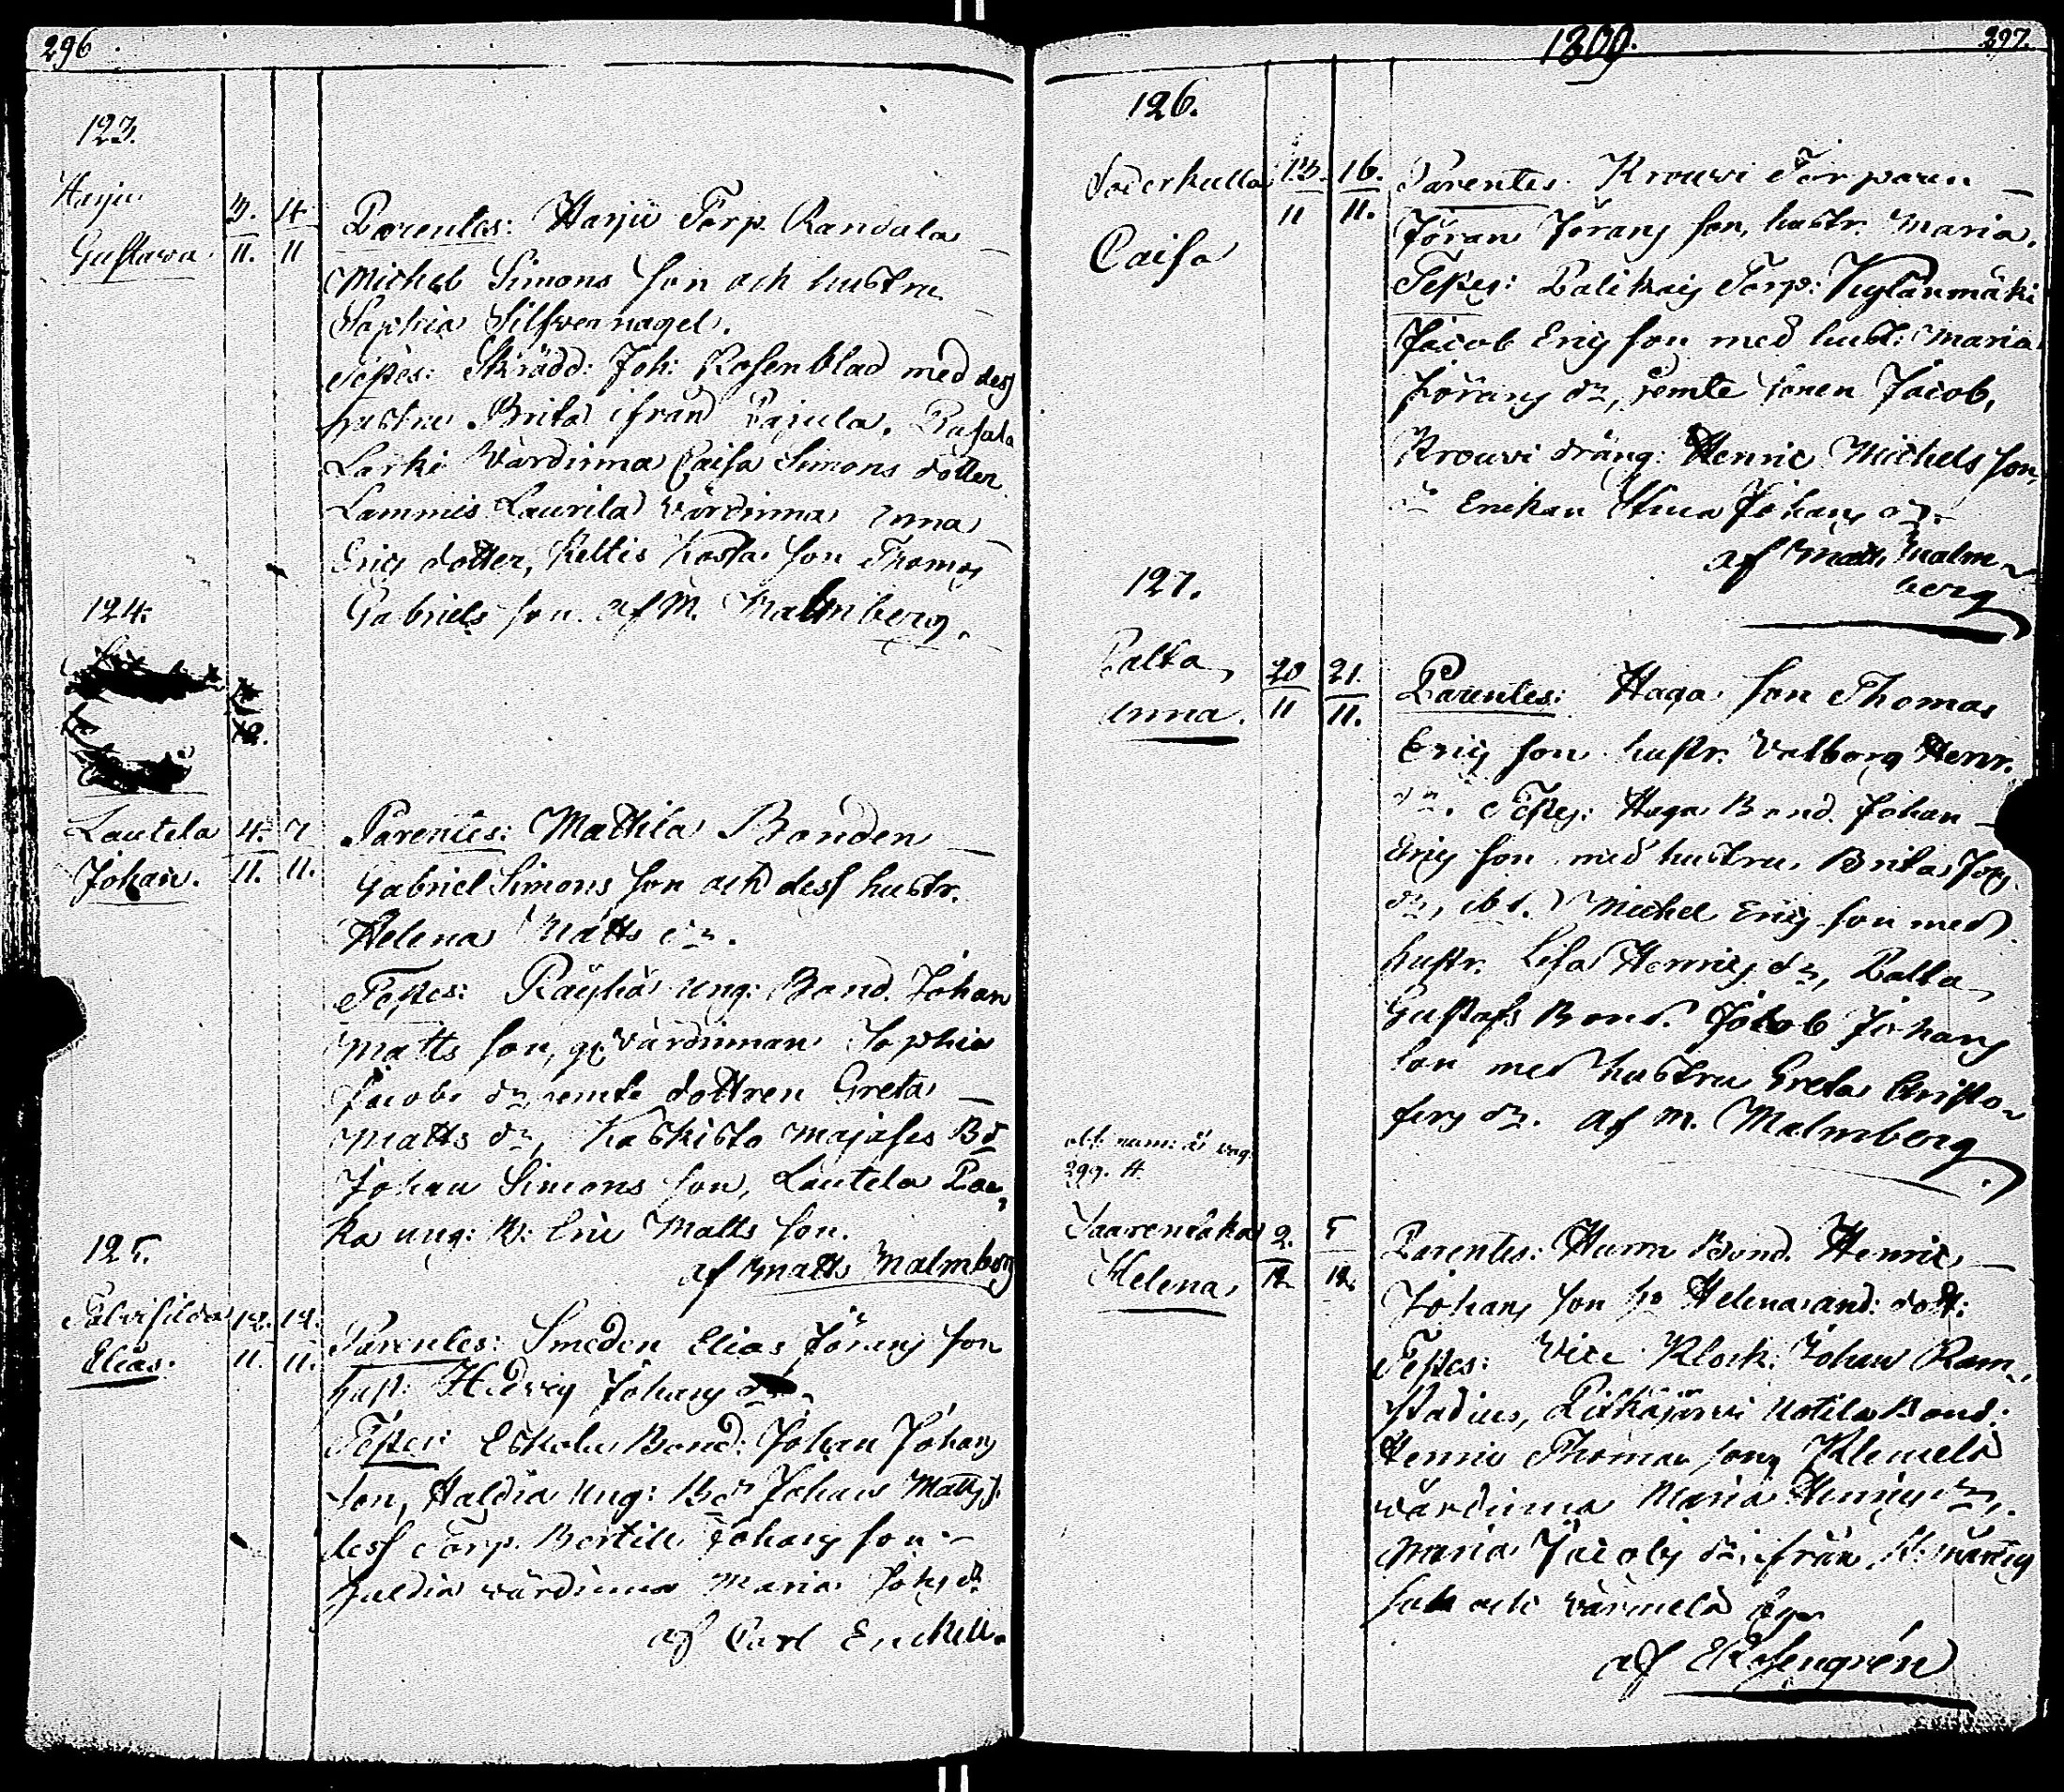 296
123.
Harju
Gustawa
3. 4.
11. 11
Parentes: Harju Torp. Randala
Michel Simons son och hustru
Sophia Silfwernagel.
Testes: Skrädd: Joh: Rosenblad med dess
hustru Brita ifrån Pajula, Rasala
Larki Värdinna Caisa Simons dotter
Lammis Laurila Värdinna Anna
Erics dotter, Keltis Kosta son Thomas
Gabriels son. af M. Malmberg.
124.
12.
Lautela 4. 7
Johan. 11. 11.
Parentes: Mattila Bonden
Gabriel Simons son och dess hustr.
Helena Matts dr.
Testes: Räyhä ung: Bond. Johan
Matts son, Värdinnan Sophia
Jacobs dr, semte dottren Greta
Matts dr, Koskisto Bd
Johan Simons son, Lautela
ka ung: B: Eric Matts son.
af Matts Malmberg
125.
12. 12.
Elias. 11. 11.
Parentes: Smeden Elias Jörans son
hust: Hedvig Johans dr.
Testes: Eskola Bond: Johan Johans
son, Haldia ung: Bd Johan Matts s.
dess Torp. Bertill Johans son
Haldia värdinna Maria Johs d.
af Carl Enckell.
1809.
297.
126.
Söderkulla 13. 16.
11 11.
Caisa
Parentes: Krouvi Torparen
Jöran Jörans son, hustr. Maria.
Testes: Torp: Kylänmäki
Jacob Erics son med hust: Maria
Jörans dr, semte sonen Jacob,
Krouvi dräng: Henric Michels son,
do Enkan Stina Johans dr.
af Matts Malm
berg
127.
Palta 20 21.
Anna. 11 11.
Parentes: Haga son Thomas
Erics son hustr. Valborg Henr.
dr. Testes: Haga Bond. Johan
Erics son med hustru Brita Johs
dr, ibd. Michel Erics son med
hustr. Lisa Henrics dr, Palta
Gustafs Bond. Jacob Johans
son med hustru Greta Christo
fers dr. af M. Malmberg
obf. num: är pag.
299. #
Saarenmaka 2. 5
Helena. 12. 12.
Parentes: Hurra Bond. Henric
Johans son ho Helena And: dott:
Testes: Vice Klock: Johan Ram
stadius, Pitkäjärvi Uotila Bond:
Henric Thomas son, Klemelä
värdinna Maria Henrics dr,
Maria Jacobs dr, ifrån
och
af Rosengrén